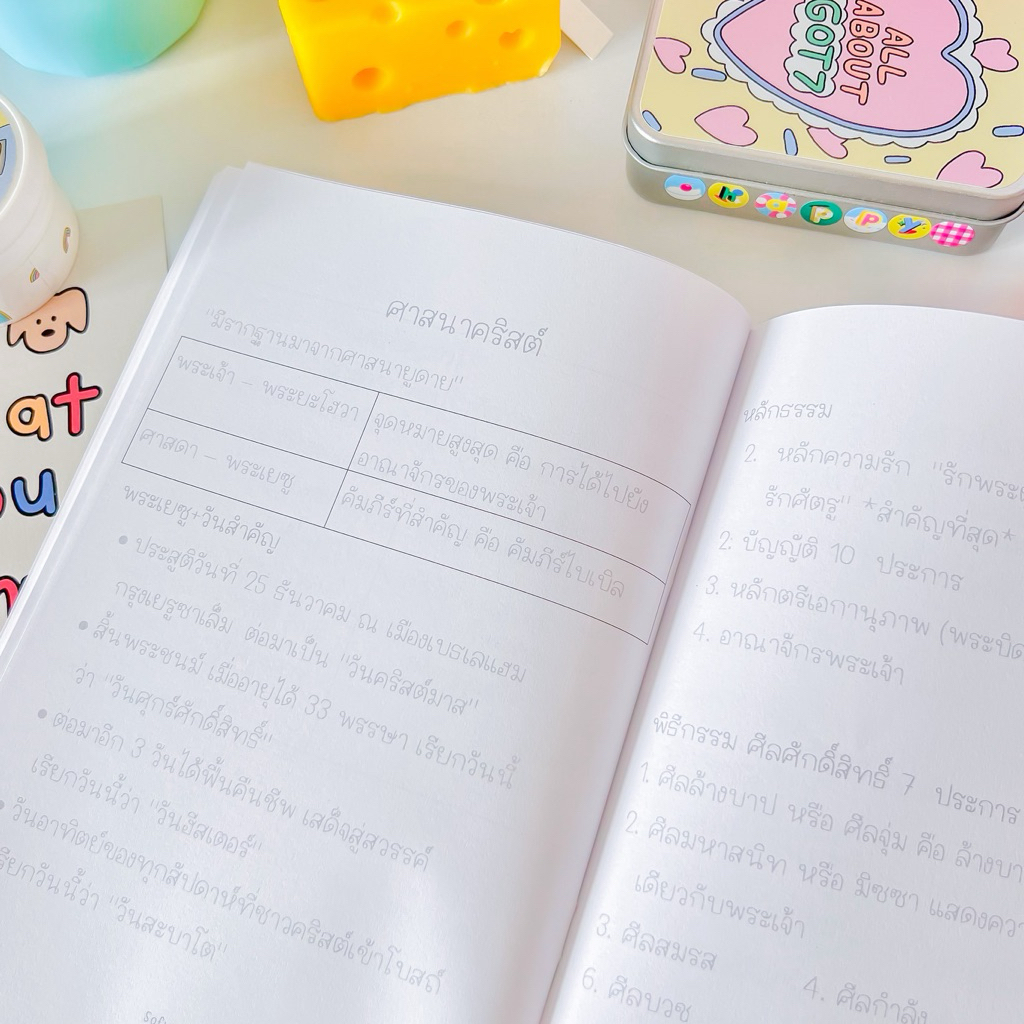 ALL
ABOUT
GOT7
H a p p y
at
ou
ศาสนาคริสต์
"มีรากฐานมาจากศาสนายูดาย"
พระเจ้า - พระยะโฮวา
จุดหมายสูงสุด คือ การได้ไปยัง
อาณาจักรของพระเจ้า
ศาสดา - พระเยซู
คัมภีร์ที่สำคัญ คือ คัมภีร์ไบเบิล
พระเยซู+วันสำคัญ
• ประสูติวันที่ 25 ธันวาคม ณ เมืองเบธเลแฮม
กรุงเยรูซาเล็ม ต่อมาเป็น "วันคริสต์มาส"
• สิ้นพระชนม์ เมื่ออายุได้ 33 พรรษา เรียกวันนี้
ว่า "วันศุกร์ศักดิ์สิทธิ์"
• ต่อมาอีก 3 วันได้ฟื้นคืนชีพ เสด็จสู่สวรรค์
เรียกวันนี้ว่า "วันอีสเตอร์"
• วันอาทิตย์ของทุกสัปดาห์ที่ชาวคริสต์เข้าโบสถ์
เรียกวันนี้ว่า "วันสะบาโต"
หลักธรรม
2. หลักความรัก "รักพระ
รักศัตรู" *สำคัญที่สุด*
2. บัญญัติ 10 ประการ
3. หลักตรีเอกานุภาพ (พระบิด
4. อาณาจักรพระเจ้า
พิธีกรรม ศีลศักดิ์สิทธิ์ 7 ประการ
1. ศีลล้างบาป หรือ ศีลจุ่ม คือ ล้างบา
2. ศีลมหาสนิท หรือ มิซซา แสดงควา
เดียวกับพระเจ้า
3. ศีลสมรส
4. ศีลกำลัง
6. ศีลบวช